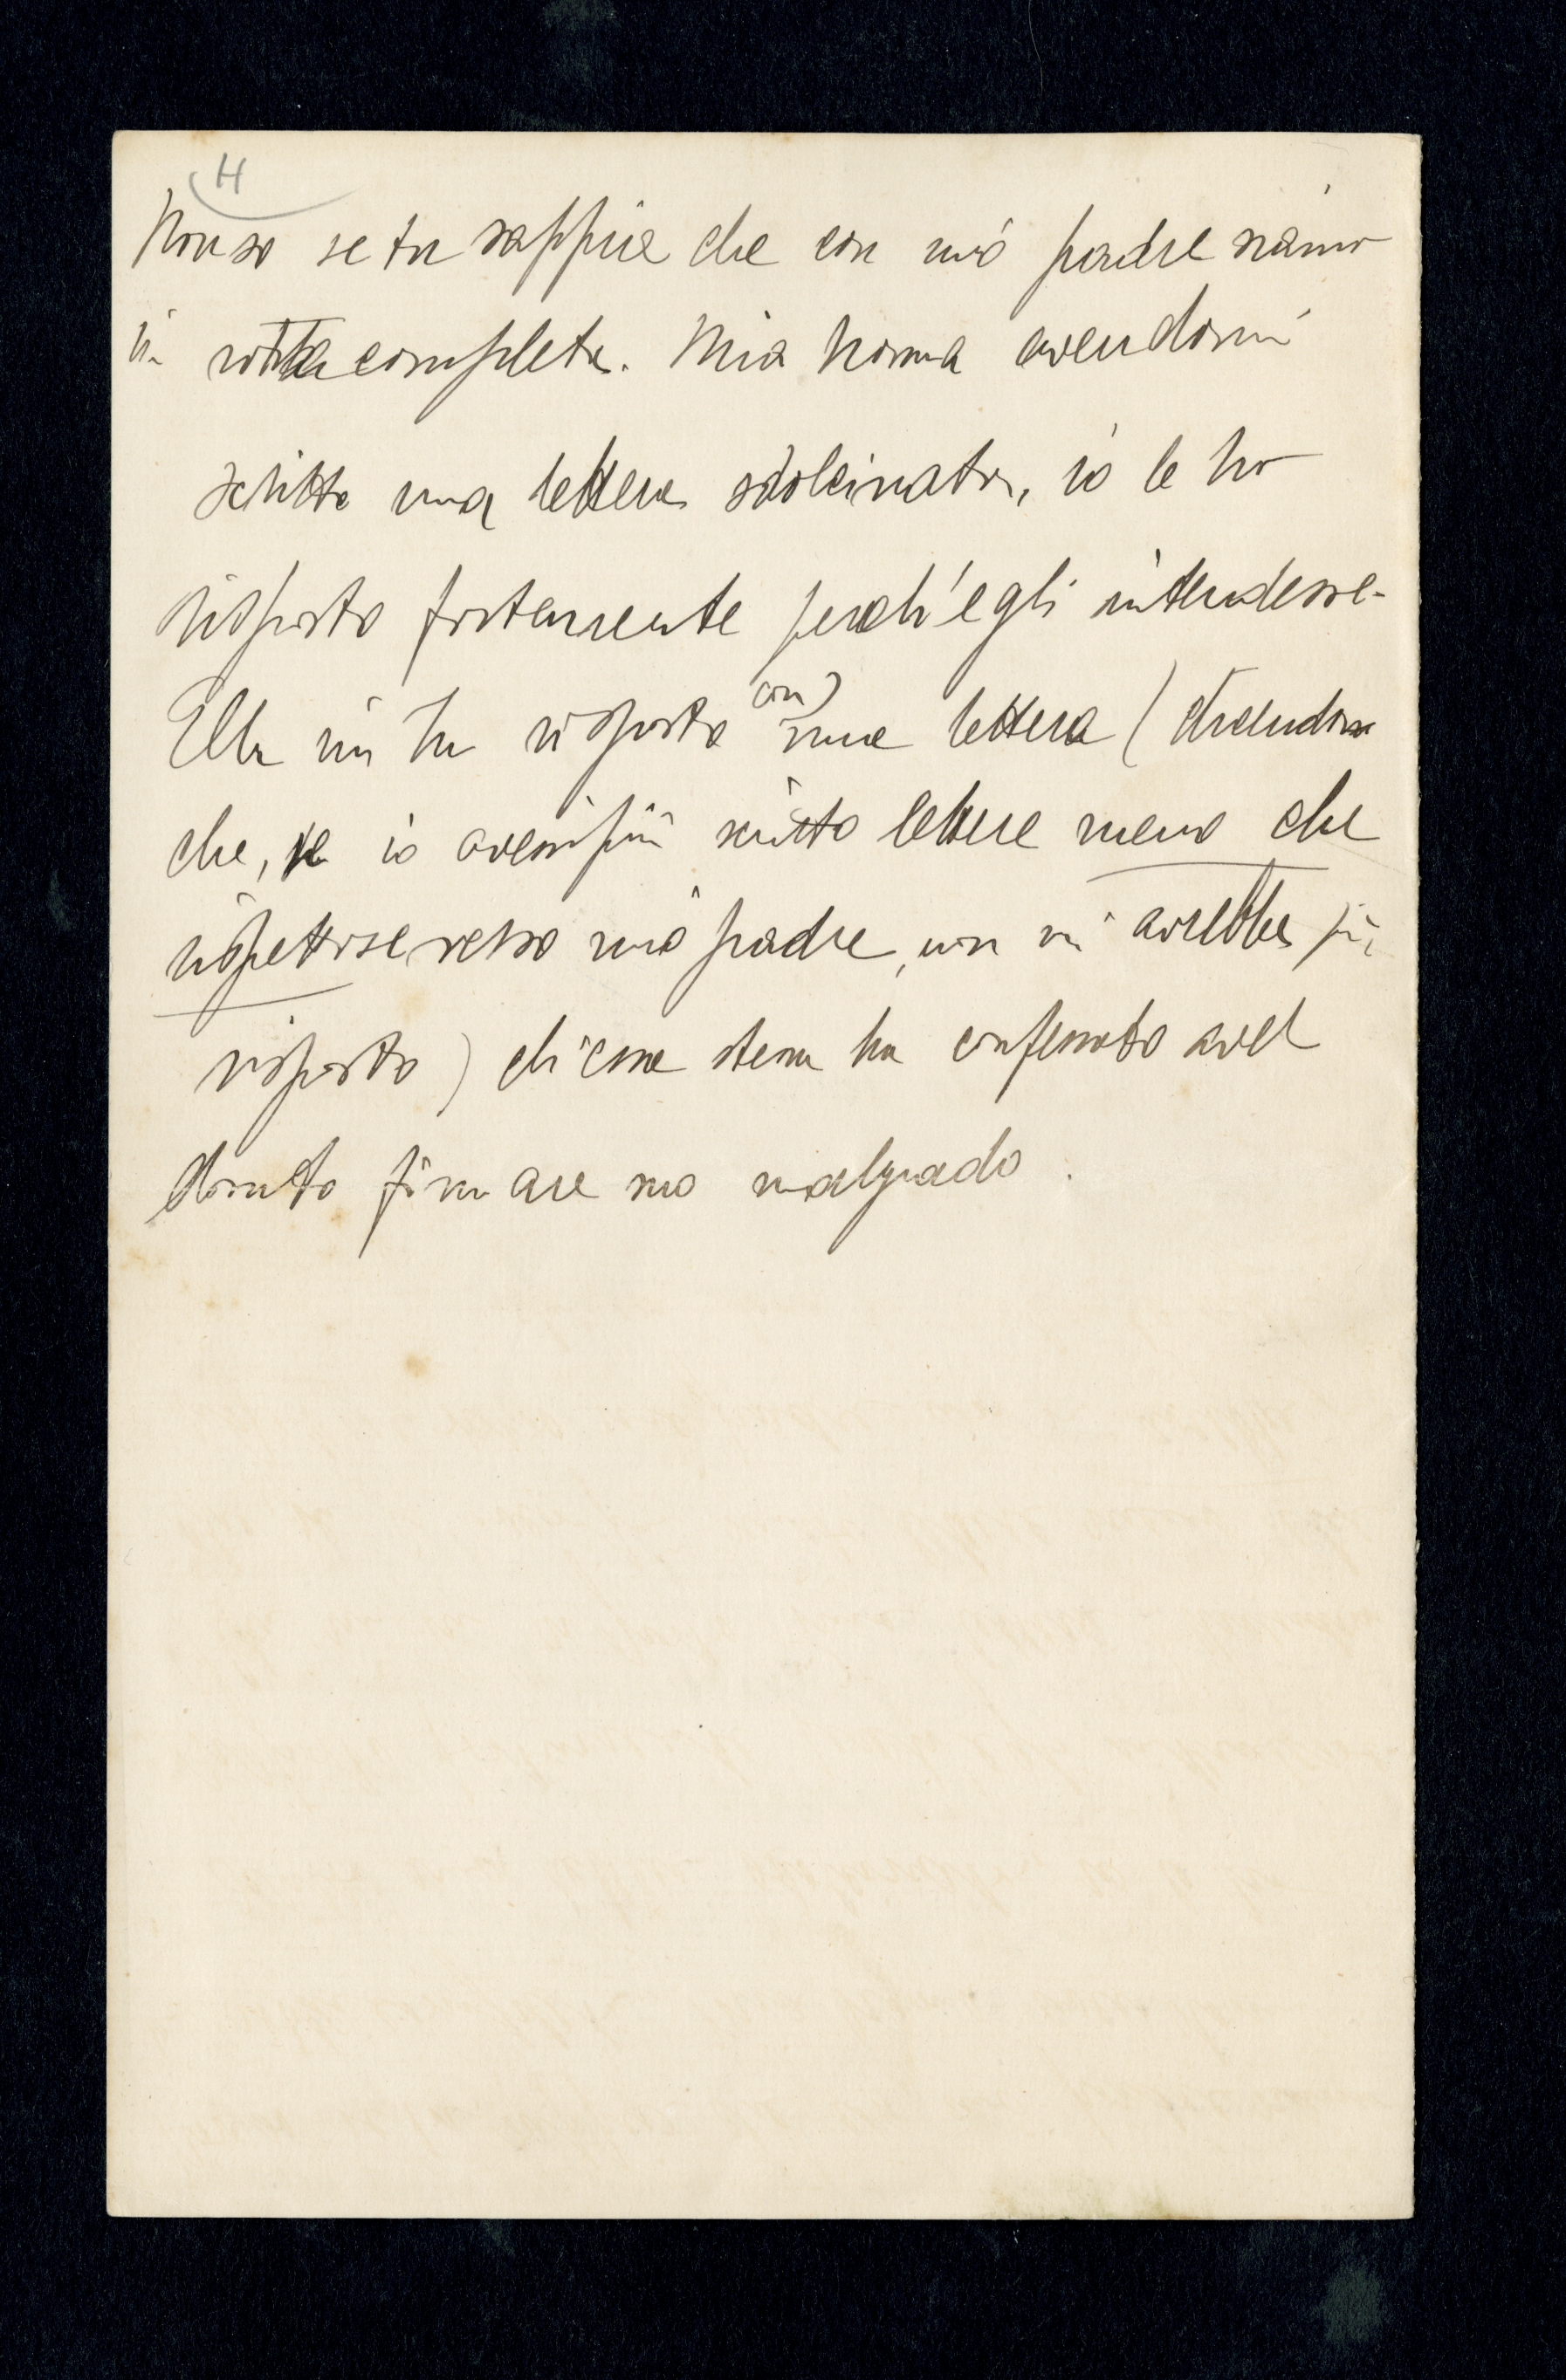 4
Non so se tu sappia che con mio padre siamo
in rotta completa. Mia nonna avendomi
scritto una lettera sdolcinata, io le ho
risposto fortemente perch'egli intendesse.
Ella mi ha risposto con una lettera (dicendomi
che, se io avessi più scritto lettere meno che
rispettose verso mio padre, non mi avrebbe più
risposto) ch'essa stessa ha confessato aver
dovuto firmare suo malgrado.